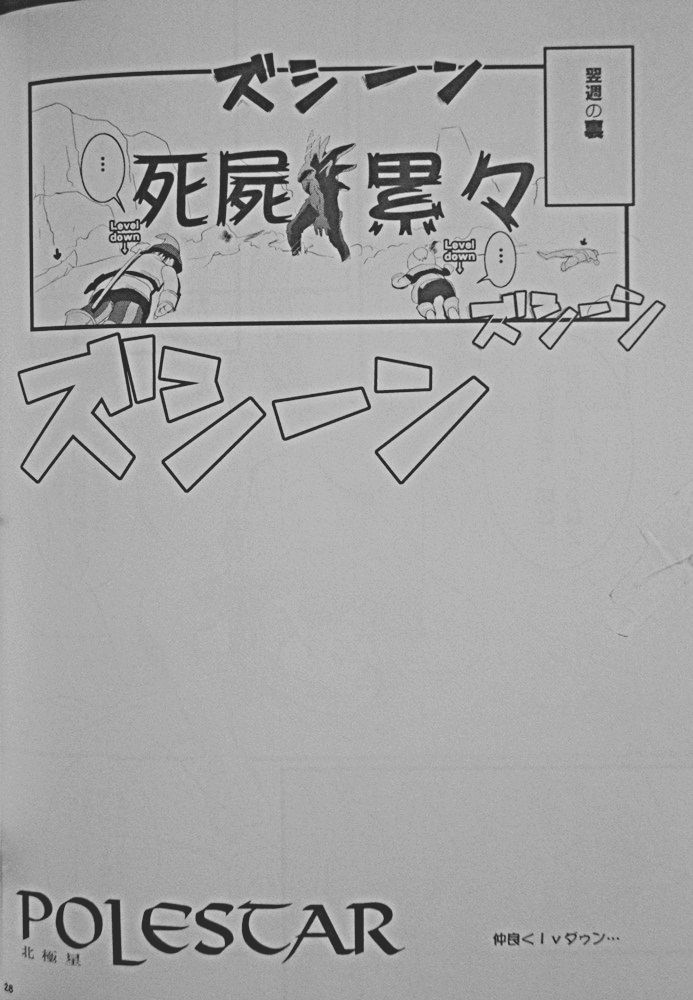 翌週の裏
ズシーン
死屍累々
…
Level
down
Level
down
…
ズシーン
ズシーン
POLESTAR
北極星
仲良くlvダウン…
28